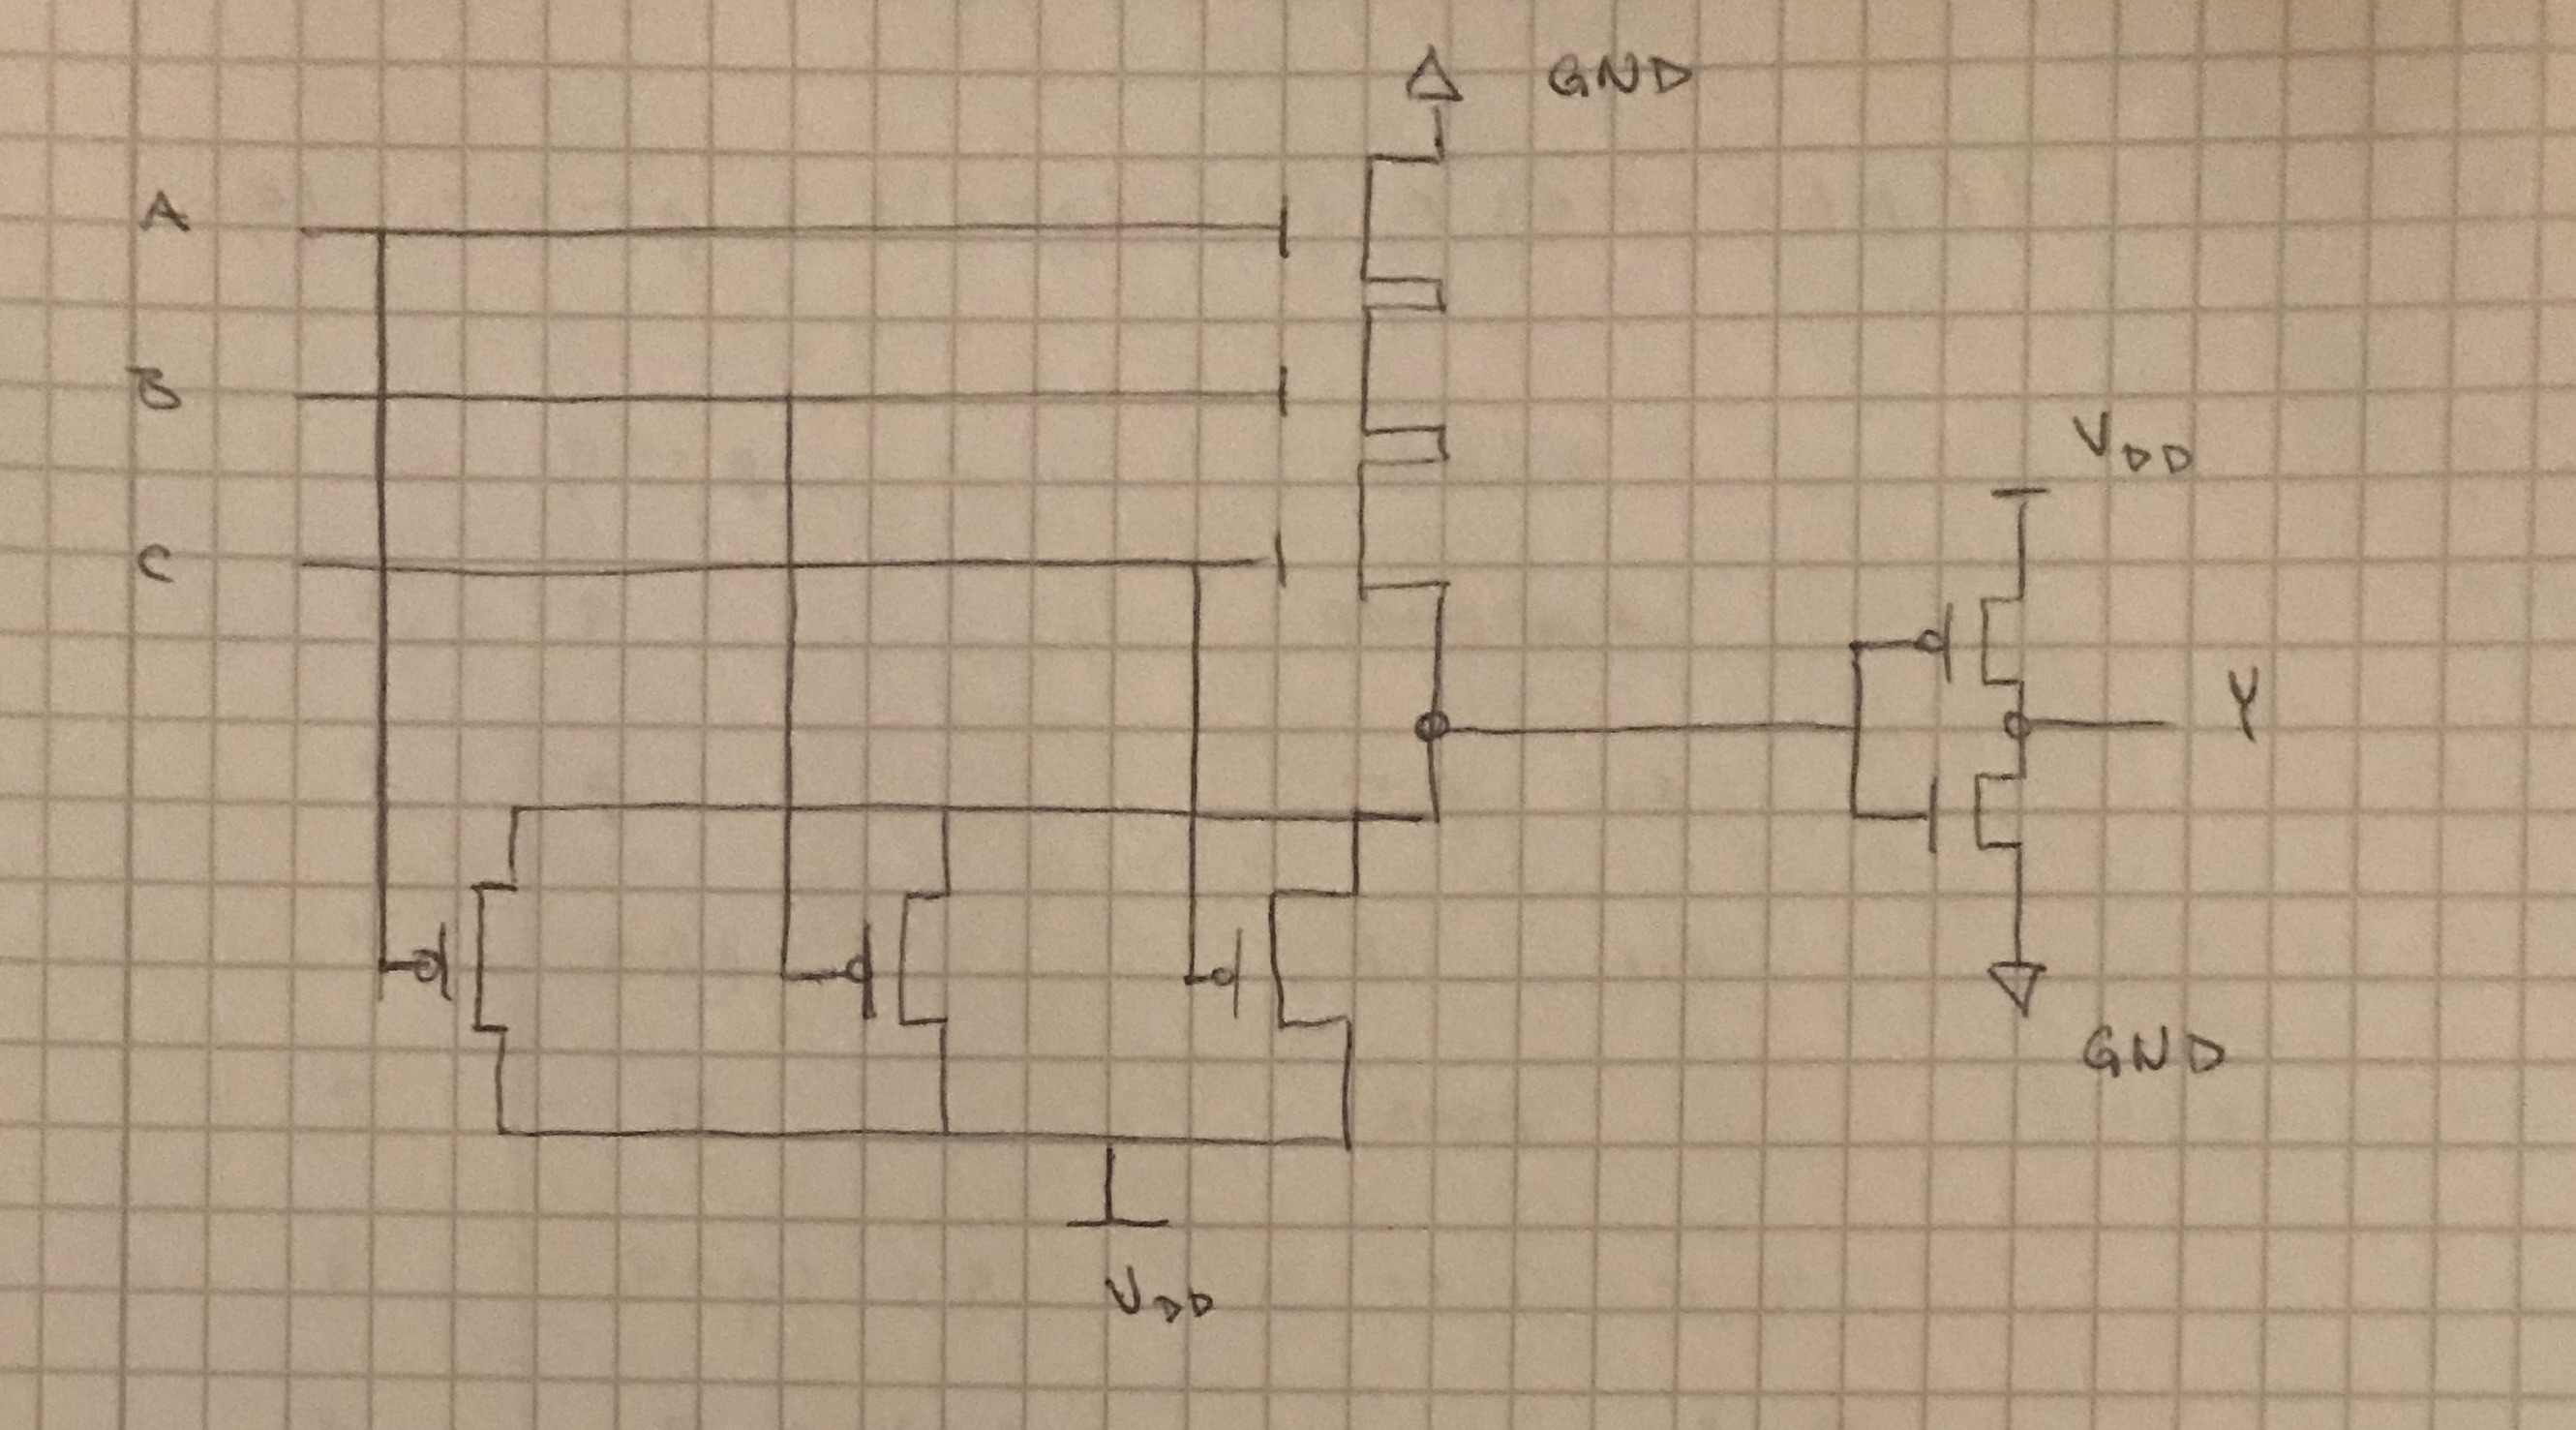 GND
A
B
V_DD
C
Y
GND
V_DD